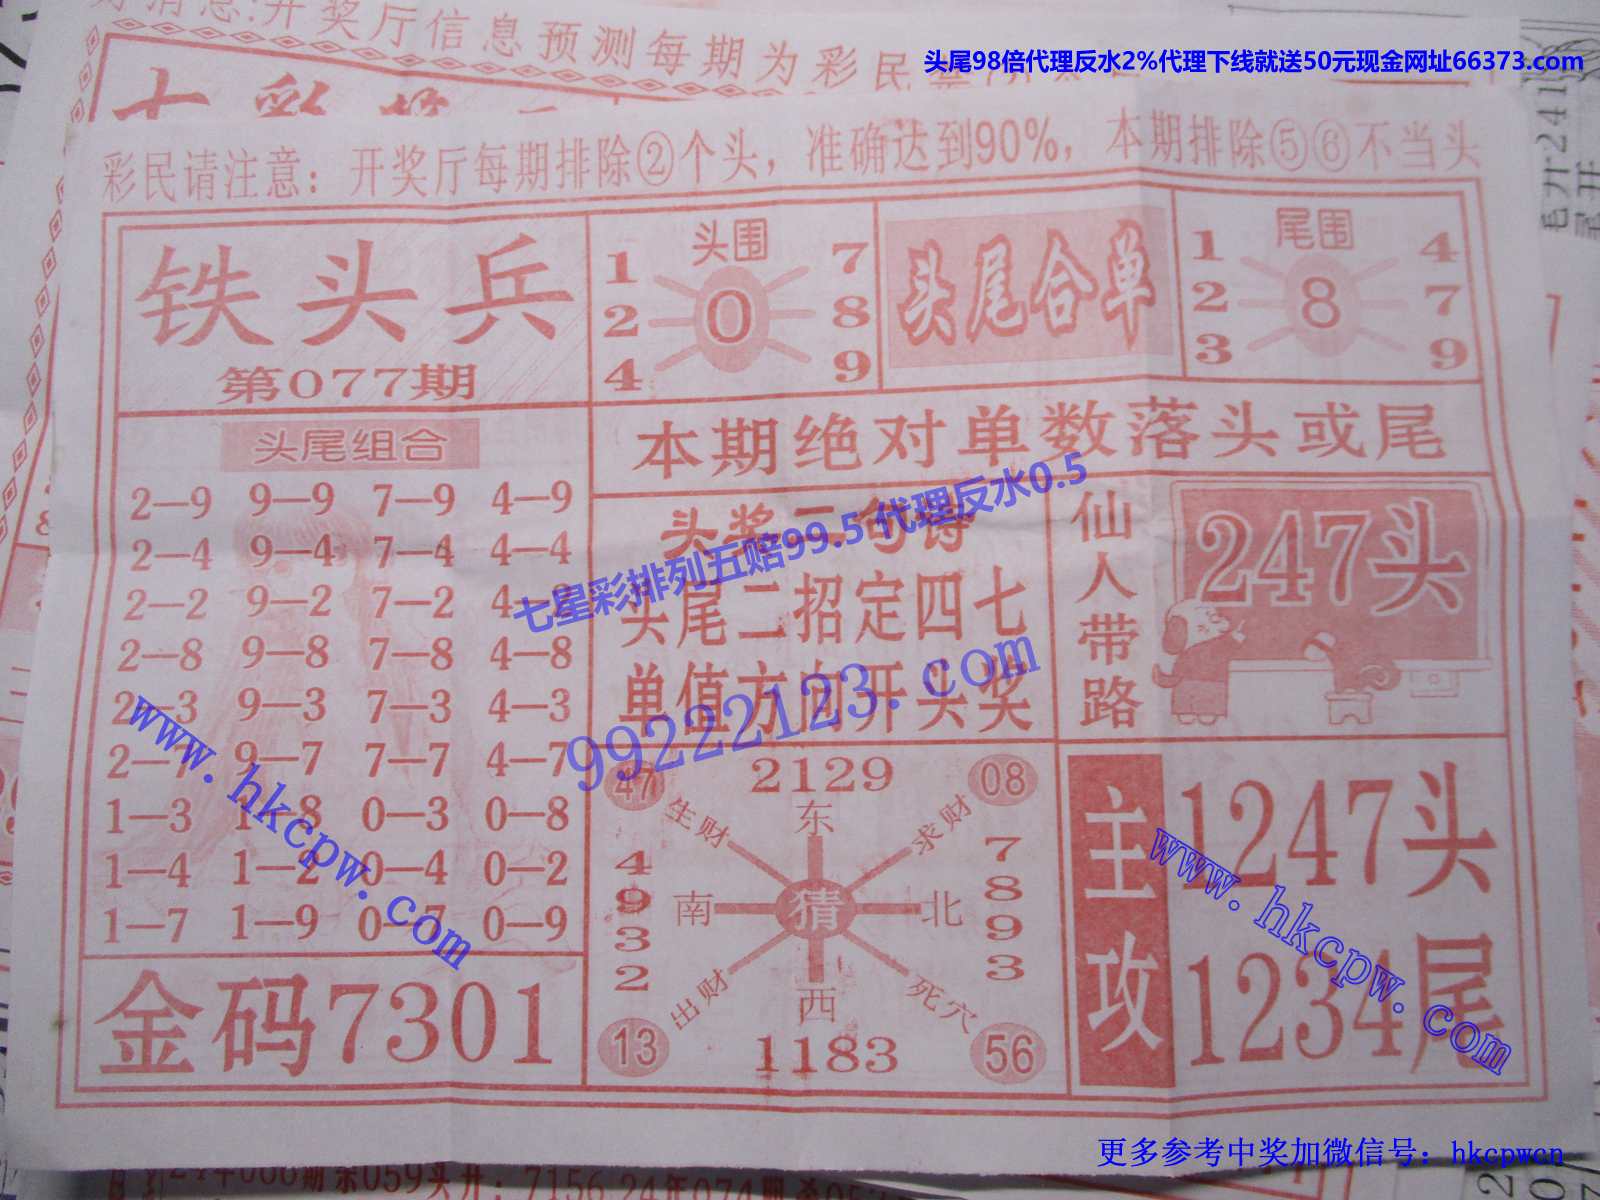 好消息:开奖厅信息预测每期为彩民
头尾98倍代理反水2%代理下线就送50元现金网址66373.com
七彩
彩民请注意：开奖厅每期排除②个头，准确达到90%，本期排除⑤⑥不当头
铁头兵
第077期
头围
1 7
2 0 8
4 9
头尾合单
尾围
1 4
2 8 7
3 9
本期绝对单数落头或尾
头尾组合
2—9 9—9 7—9 4—9
2—4 9—4 7—4 4—4
2—2 9—2 7—2 4—2
2—8 9—8 7—8 4—8
2—3 9—3 7—3 4—3
2—7 9—7 7—7 4—7
1—3 1—8 0—3 0—8
1—4 1—2 0—4 0—2
1—7 1—9 0—7 0—9
金码7301
头奖二句诗
头尾二招定四七
单值方向开头奖
七星彩排列五赔99.5代理反水0.5
99222123.com
仙人带路
247头
47 2129 08
生财 东 求财
4932
南 猜 北
7893
出财 西 死穴
13 1183 56
主攻
1247头
1234尾
www.hkcpw.com
www.hkcpw.com
更多参考中奖加微信号：hkcpwcn